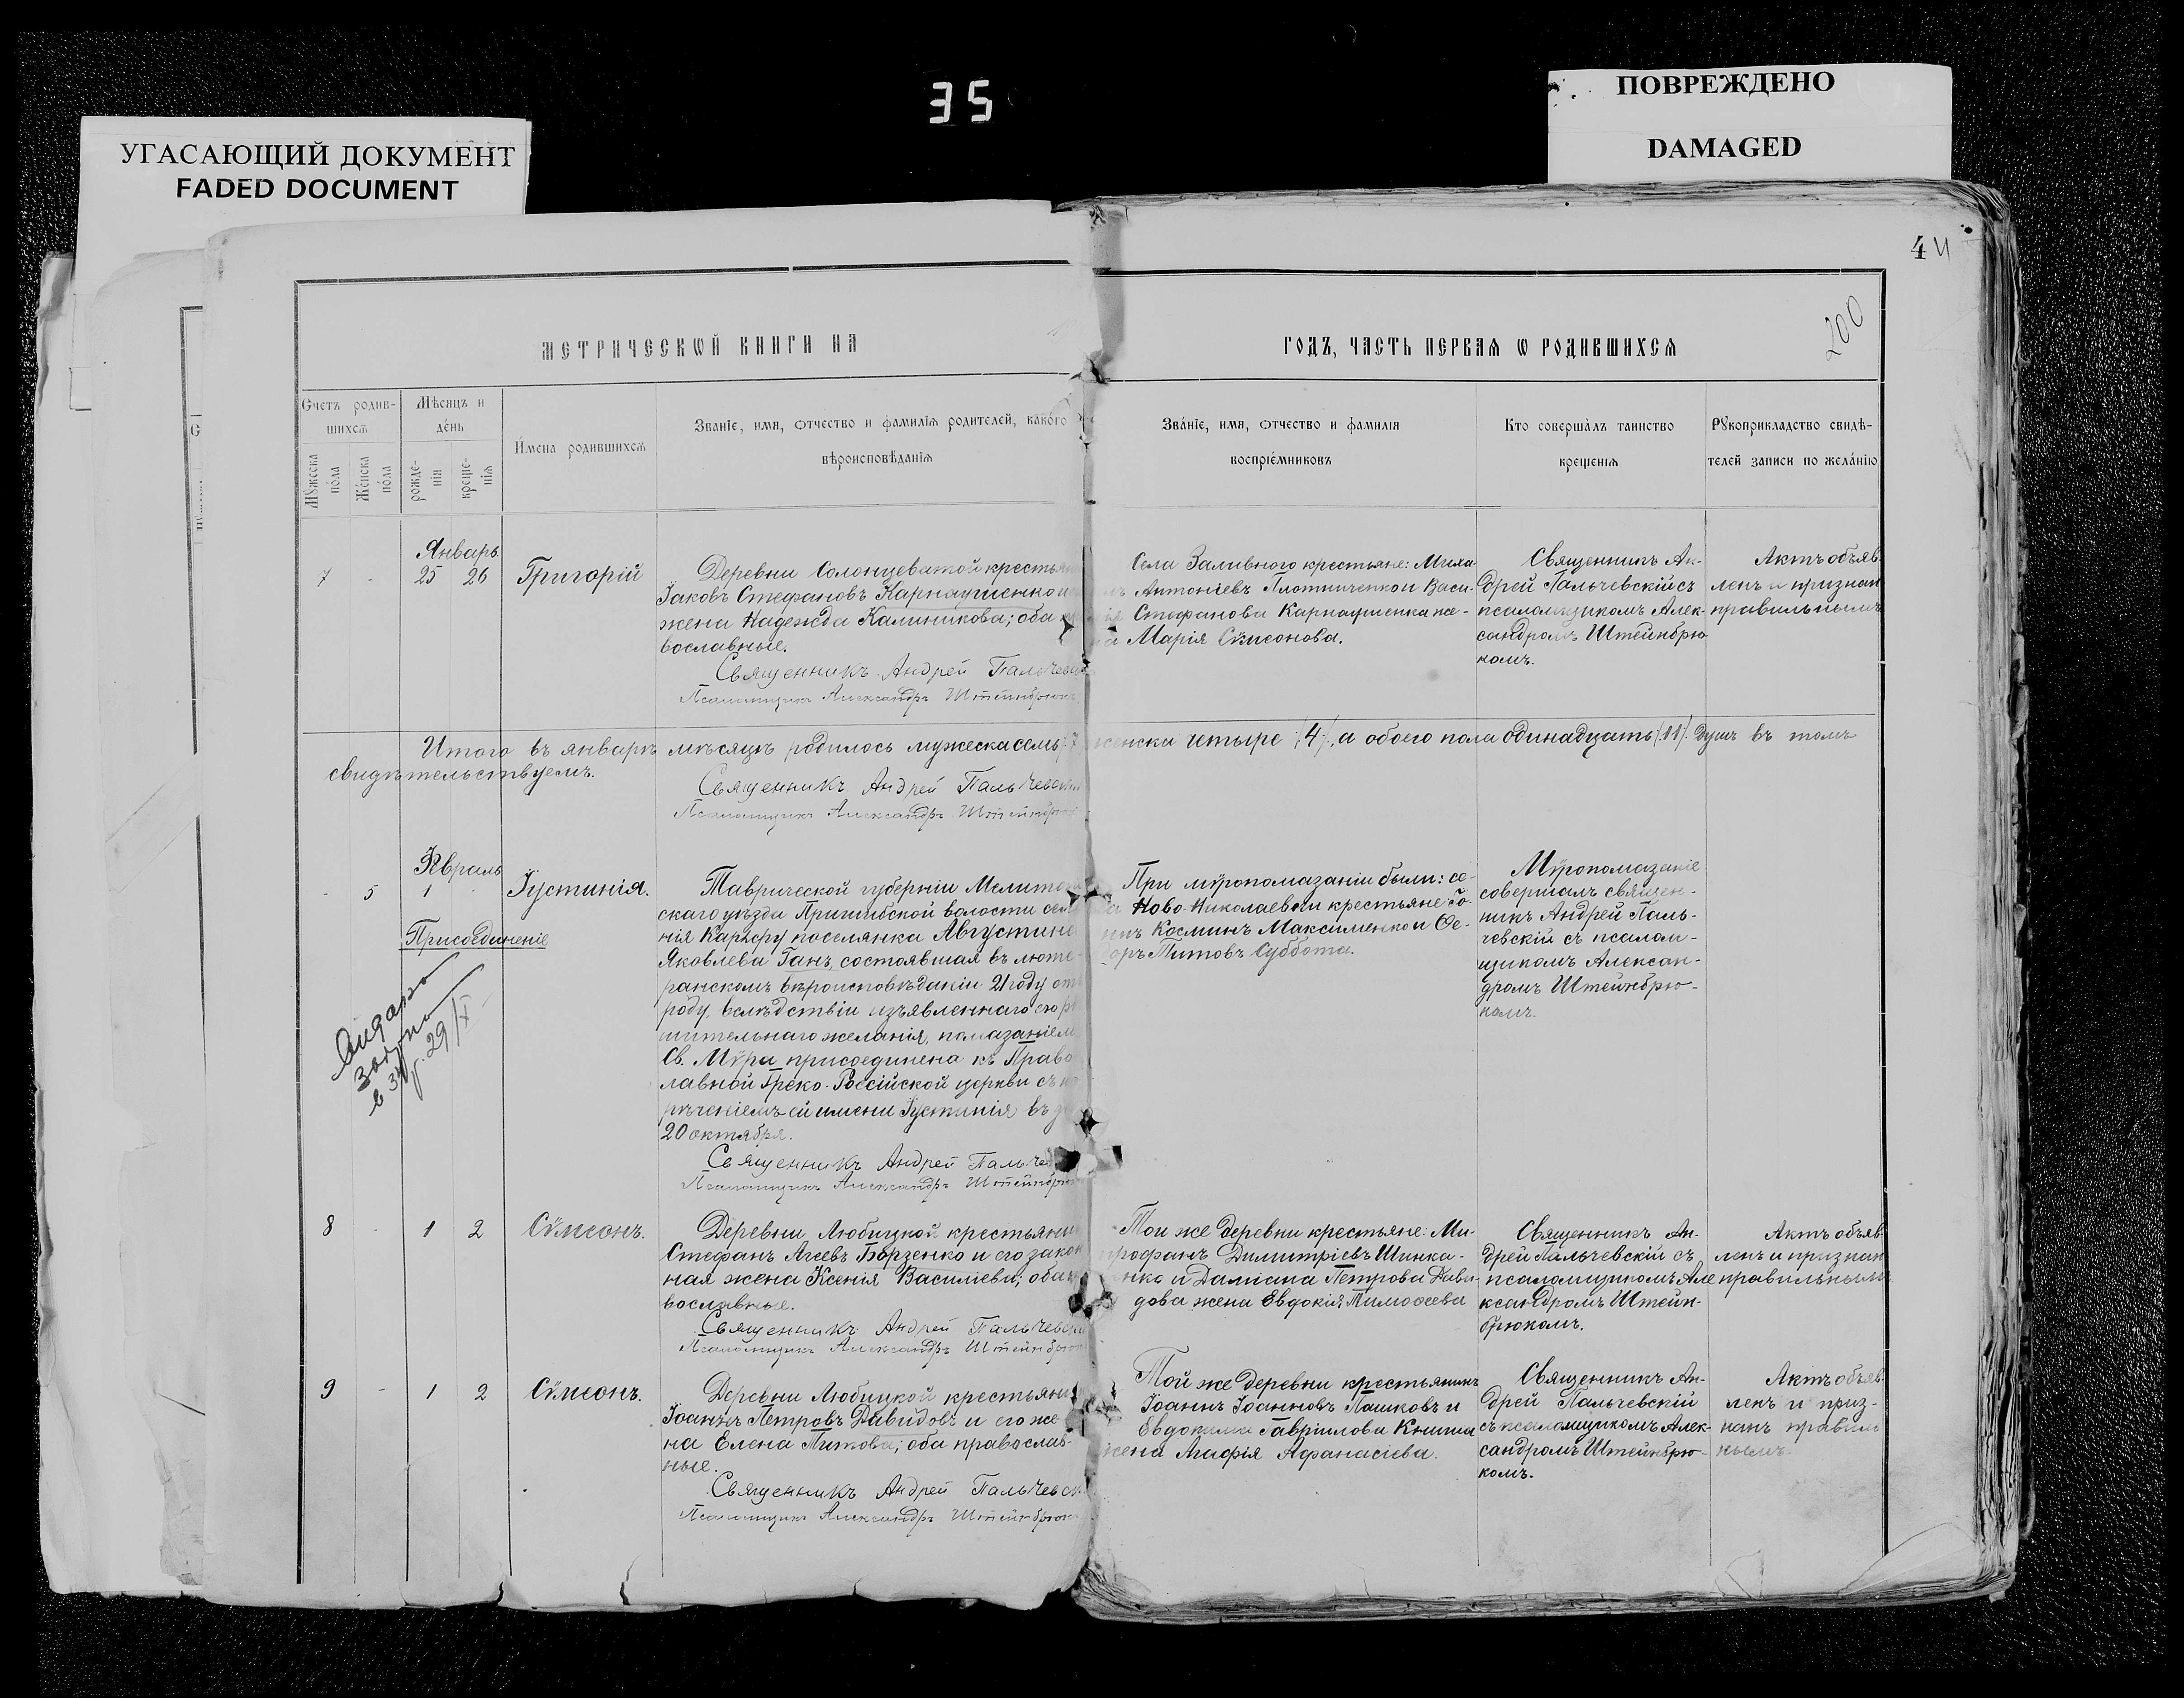 35
УГАСАЮЩИЙ ДОКУМЕНТ
FADED DOCUMENT
ПОВРЕЖДЕНО
DAMAGED
4
200
МЕТРИЧЕСКѠЙ КНИГИ НА
ГОДЪ, ЧАСТЬ ПЕРВАѦ Ѡ РОДИВШИХСѦ
Счетъ родив-
шихсѧ
Мꙋжеска пола
Женска пола
Мѣсяцъ и
день
рожде-
нія
креще-
нія
Имена родившихсѧ
Званіе, имя, ѻтчество и фамилія родителей, какого
вѣроисповѣданіѧ
Званіе, имя, ѻтчество и фамилія
воспріемниковъ
Кто совершалъ таинство
крещеніѧ
Рꙋкоприкладство свидѣ-
телей записи по желанію
Январь
7 - 25 26 Григорій
Деревни Солонцеватой крестья
Іаковъ Стефановъ Карнаушенко и
жена Надежда Калиникова; оба
вославные.
Священникъ Андрей Пальчевск
Псаломщикъ Александръ Штейнбрюк
Села Заливного крестьяне: Миха-
Антоніевъ Плотниченко и Васи-
Стефанова Карнаушенка же-
на Марія Сѵмеонова.
Священникъ Ан-
дрей Пальчевскій съ
псаломщикомъ Алек-
сандромъ Штейнбрю-
комъ.
Актъ объяв-
ленъ и признан
правильнымъ
Итого въ январѣ мѣсяцѣ родилось мужеска семь 7 женска четыре /4/, а обоего пола одинадцать /11/ душъ въ томъ
свидѣтельствуемъ.
Священникъ Андрей Пальчевскій
Псаломщикъ Александръ Штейнбрюк
Февраль
- 5 1 - Іустинія.
Присоединеніе
29/X
Таврической губерніи Мелитоп
скаго уѣзда Пришибской волости села
нія Карлсру поселянка Августина
Яковлева Ганъ, состоявшая въ люте-
ранскомъ вѣроисповѣданіи 21 году отъ
роду, вслѣдствіи изъявленнаго ею р
шительнаго желанія, помазаніем
Св. Мѵра присоединена къ Право
лавной Греко-Россійской церкви съ н
рѣченіемъ ей имени Іустинія въ д
20 октября.
Священникъ Андрей Пальчев
Псаломщикъ Александръ Штейнбрюк
При мѵропомазаніи были: се-
ла Ново-Николаевки крестьяне Іо-
аннъ Космінъ Максименко и Ѳе-
доръ Титовъ Суббота.
Мѵропомазаніе
совершалъ священ-
никъ Андрей Паль-
чевскій съ псалом-
щикомъ Алексан-
дромъ Штейнбрю-
комъ.
8 - 1 2 Сѵмеонъ.
Деревни Любицкой крестьянин
Стефанъ Агеевъ Борзенко и его закон
ная жена Ксенія Василіева; оба
вославные.
Священникъ Андрей Пальчевск
Псаломщикъ Александръ Штейнбрюк
Той же деревни крестьяне: Ми-
трофанъ Димитріевъ Шинка-
нко и Даміана Петрова Дави-
дова жена Евдокія Тимоѳеева
Священникъ Ан-
дрей Пальчевскій съ
псаломщикомъ Але-
ксандромъ Штейн-
брюкомъ.
Актъ объяв-
ленъ и признан
правильнымъ
9 - 1 2 Сѵмеонъ.
Деревни Любицкой крестьяни
Іоаннъ Петровъ Давидовъ и его же-
на Елена Титова; оба православ-
ные.
Священникъ Андрей Пальчевск
Псаломщикъ Александръ Штейнбрюк
Той же деревни крестьянинъ
Іоаннъ Іоанновъ Пашковъ и
Евдокима Гавріилова Книша
жена Агафія Афанасіева.
Священникъ Ан-
дрей Пальчевскій
съ псаломщикомъ Алек-
сандромъ Штейнбрю-
комъ.
Актъ объяв-
ленъ и приз-
нанъ правиль
нымъ.